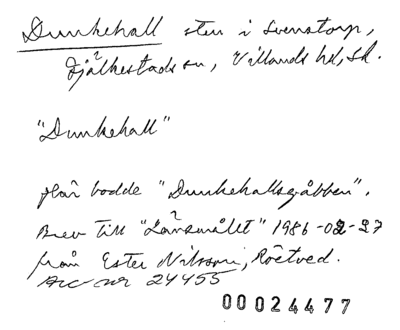 Dunkehall sten i Svenstorp,
Fjälkestads sn, Villands hd, Sk.
"Dunkehall"
Här bodde "Dunkehallsgubben".
Brev till "Länsmålet" 1986-02-27
från Ester Nilsson, Röetved.
Acc nr 24455
00024477